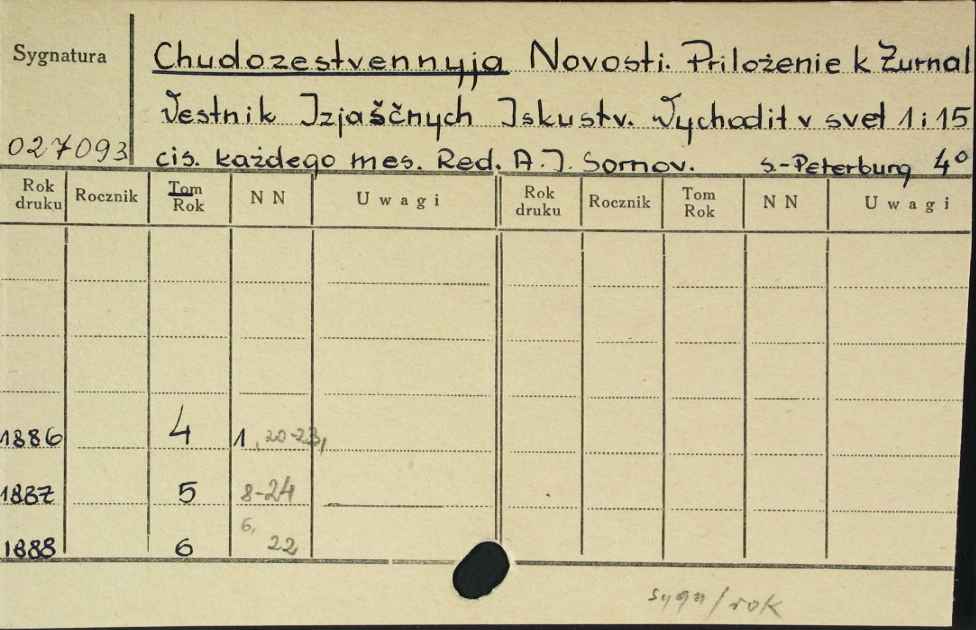 Sygnatura
Chudozestvennyja Novosti. Priloženie k Žurnal
Vestnik Izjaščnych Iskustv. Vychodit v svet 1 i 15
027093 cis. každego mes. Red. A. I. Somov. S.-Peterburg 4°
Rok druku Rocznik Tom Rok N N Uwagi Rok druku Rocznik Tom Rok N N Uwagi
1886 4 1, 20-23,
1887 5 8-24
1888 6 6, 22
sygn/rok